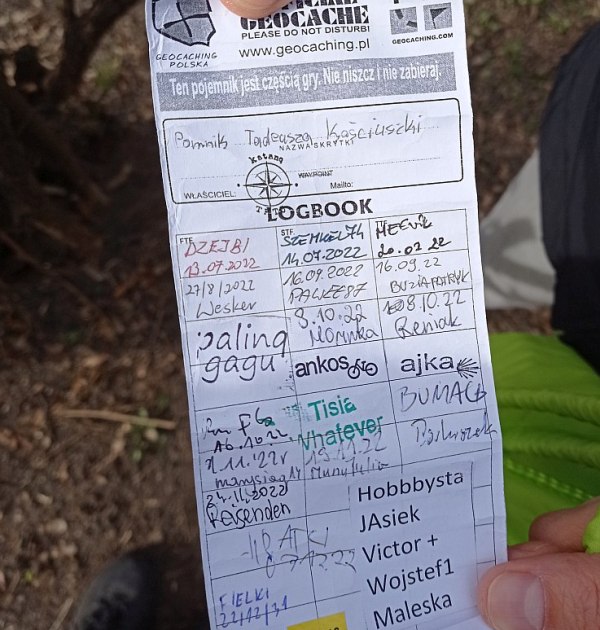 GEOCACHING
POLSKA
GEOCACHE
PLEASE DO NOT DISTURB!
www.geocaching.pl
GEOCACHING.COM
Ten pojemnik jest częścią gry. Nie niszcz i nie zabieraj.
Pomnik Tadeusza Kościuszki
NAZWA SKRYTKI
Katana
WAYPOINT
WŁAŚCICIEL:
Mailto:
LOGBOOK
FTF
DZEJBI
13.07.2022
STF
SZEMKEL74
14.07.2022
20.07.22
27/8/2022
Wesker
16.09.2022
16.09.22
paling
gagu
8.10.22
Morinka
8.10.22
Reniak
ankos
ajka
16.10.22
Tisia
Whatever
BUMACB
1.11.'22r
19.11.22
24.11.2022
Reisenden
Hobbbysta
JAsiek
Victor +
Wojstef1
Maleska
FIELKI
22/12/31